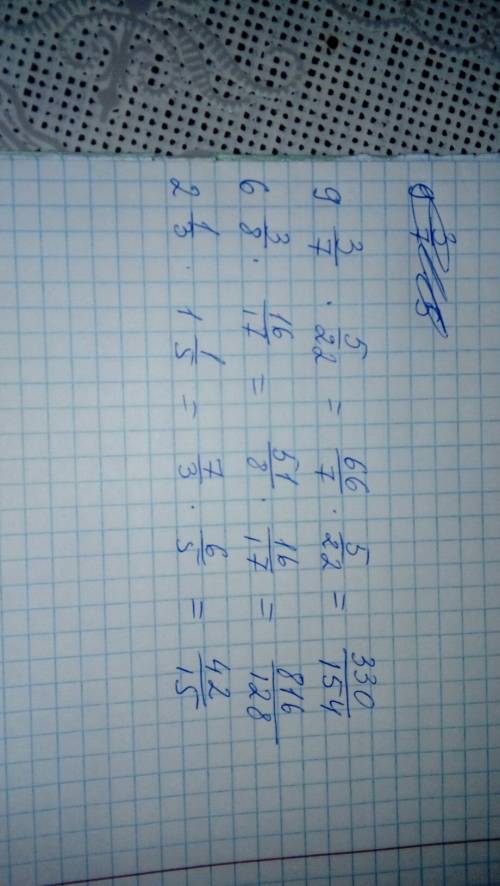 9 3/7 · 5/22 = 66/7 · 5/22 = 330/154
6 3/8 · 16/17 = 51/8 · 16/17 = 816/128
2 1/3 · 1 1/5 = 7/3 · 6/5 = 42/15